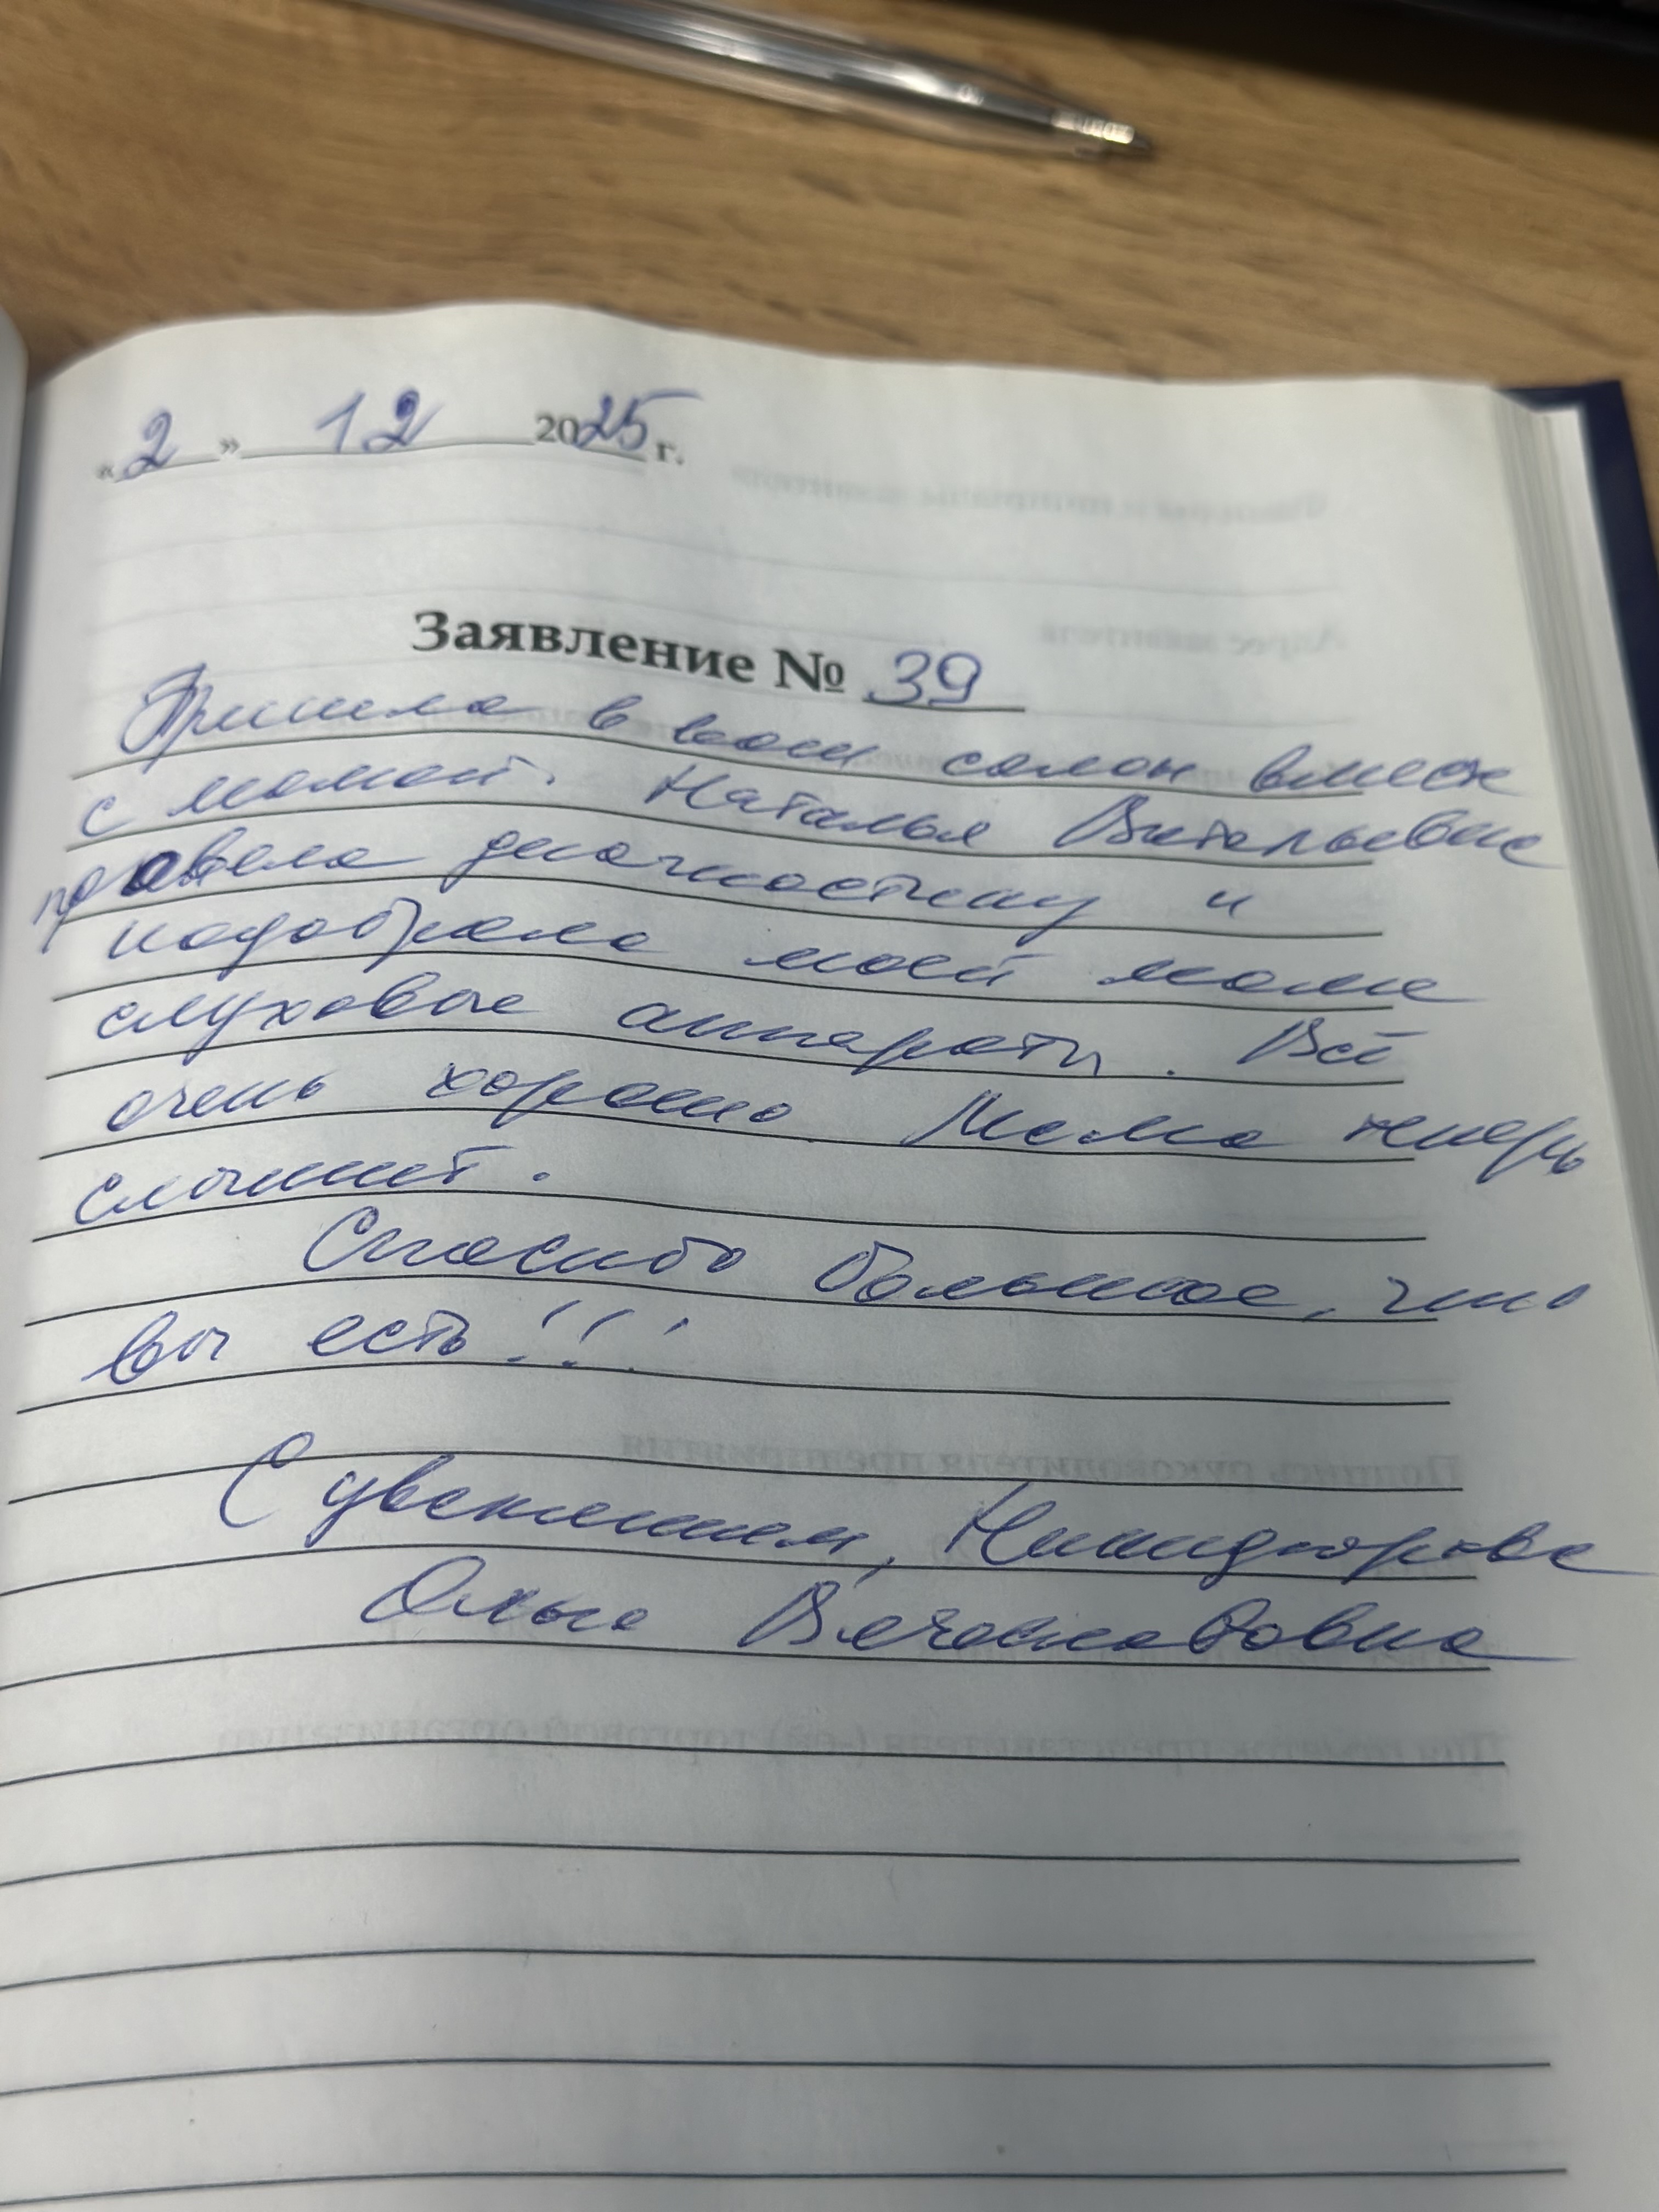 « 2 » 12 2025 г.
Заявление № 39
Пришла в ваш салон вместе
с мамой. Наталья Витальевна
провела диагностику и
подобрала моей маме
слуховые аппараты. Всё
очень хорошо. Мама теперь
слышит.
Спасибо большое, что
вы есть!!!
С уважением,
Ольга Вячеславовна